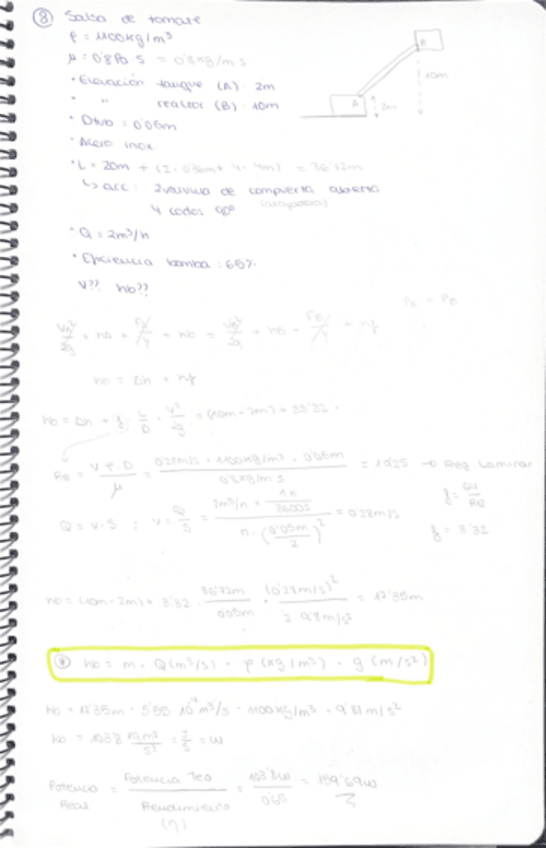 ⑧ Salsa de tomate
ρ = 1100 kg/m³
μ = 0'8 Pa s = 0'8 kg/m s
• Elevación tanque (A): 2m
" " reactor (B): 10m
B
10m
A
2m
• Dtubo = 0'05m
• Acero inox
• L = 20m + (2 · 0'36m + 4 · 4m) = 36'72m
↳ acc: 2 valvula de compuerta abierta
4 codos 90°
• Q = 2m³/h
• Eficiencia bomba: 65%
V?? hb??
hb = Δh + hf
hb = Δh + f · L/D · V²/2g = (10m - 2m) +
Re = V ρ D / μ = 0'28m/s · 1100kg/m³ · 0'05m / 0'8 kg/m s = 19'25 → Reg Laminar
f = 64/Re
Q = V·S ; V = Q/S = 2m³/h × 1h/3600s / π · (0'05m/2)² = 0'28m/s
f = 3'32
hb = (10m - 2m) + 3'32 · 36'72m/0'05m · (0'28m/s)² / 2 · 9'8m/s² = 17'35m
⊛ hb = m · Q(m³/s) · ρ(kg/m³) · g(m/s²)
hb = 17'35m · 5'55 10⁻⁴ m³/s · 1100kg/m³ · 9'81m/s²
hb = 103'8 kg m²/s³ = J/s = W
Potencia Real = Potencia Teo / Rendimiento (η) = 103'8W / 0'65 = 159'69W